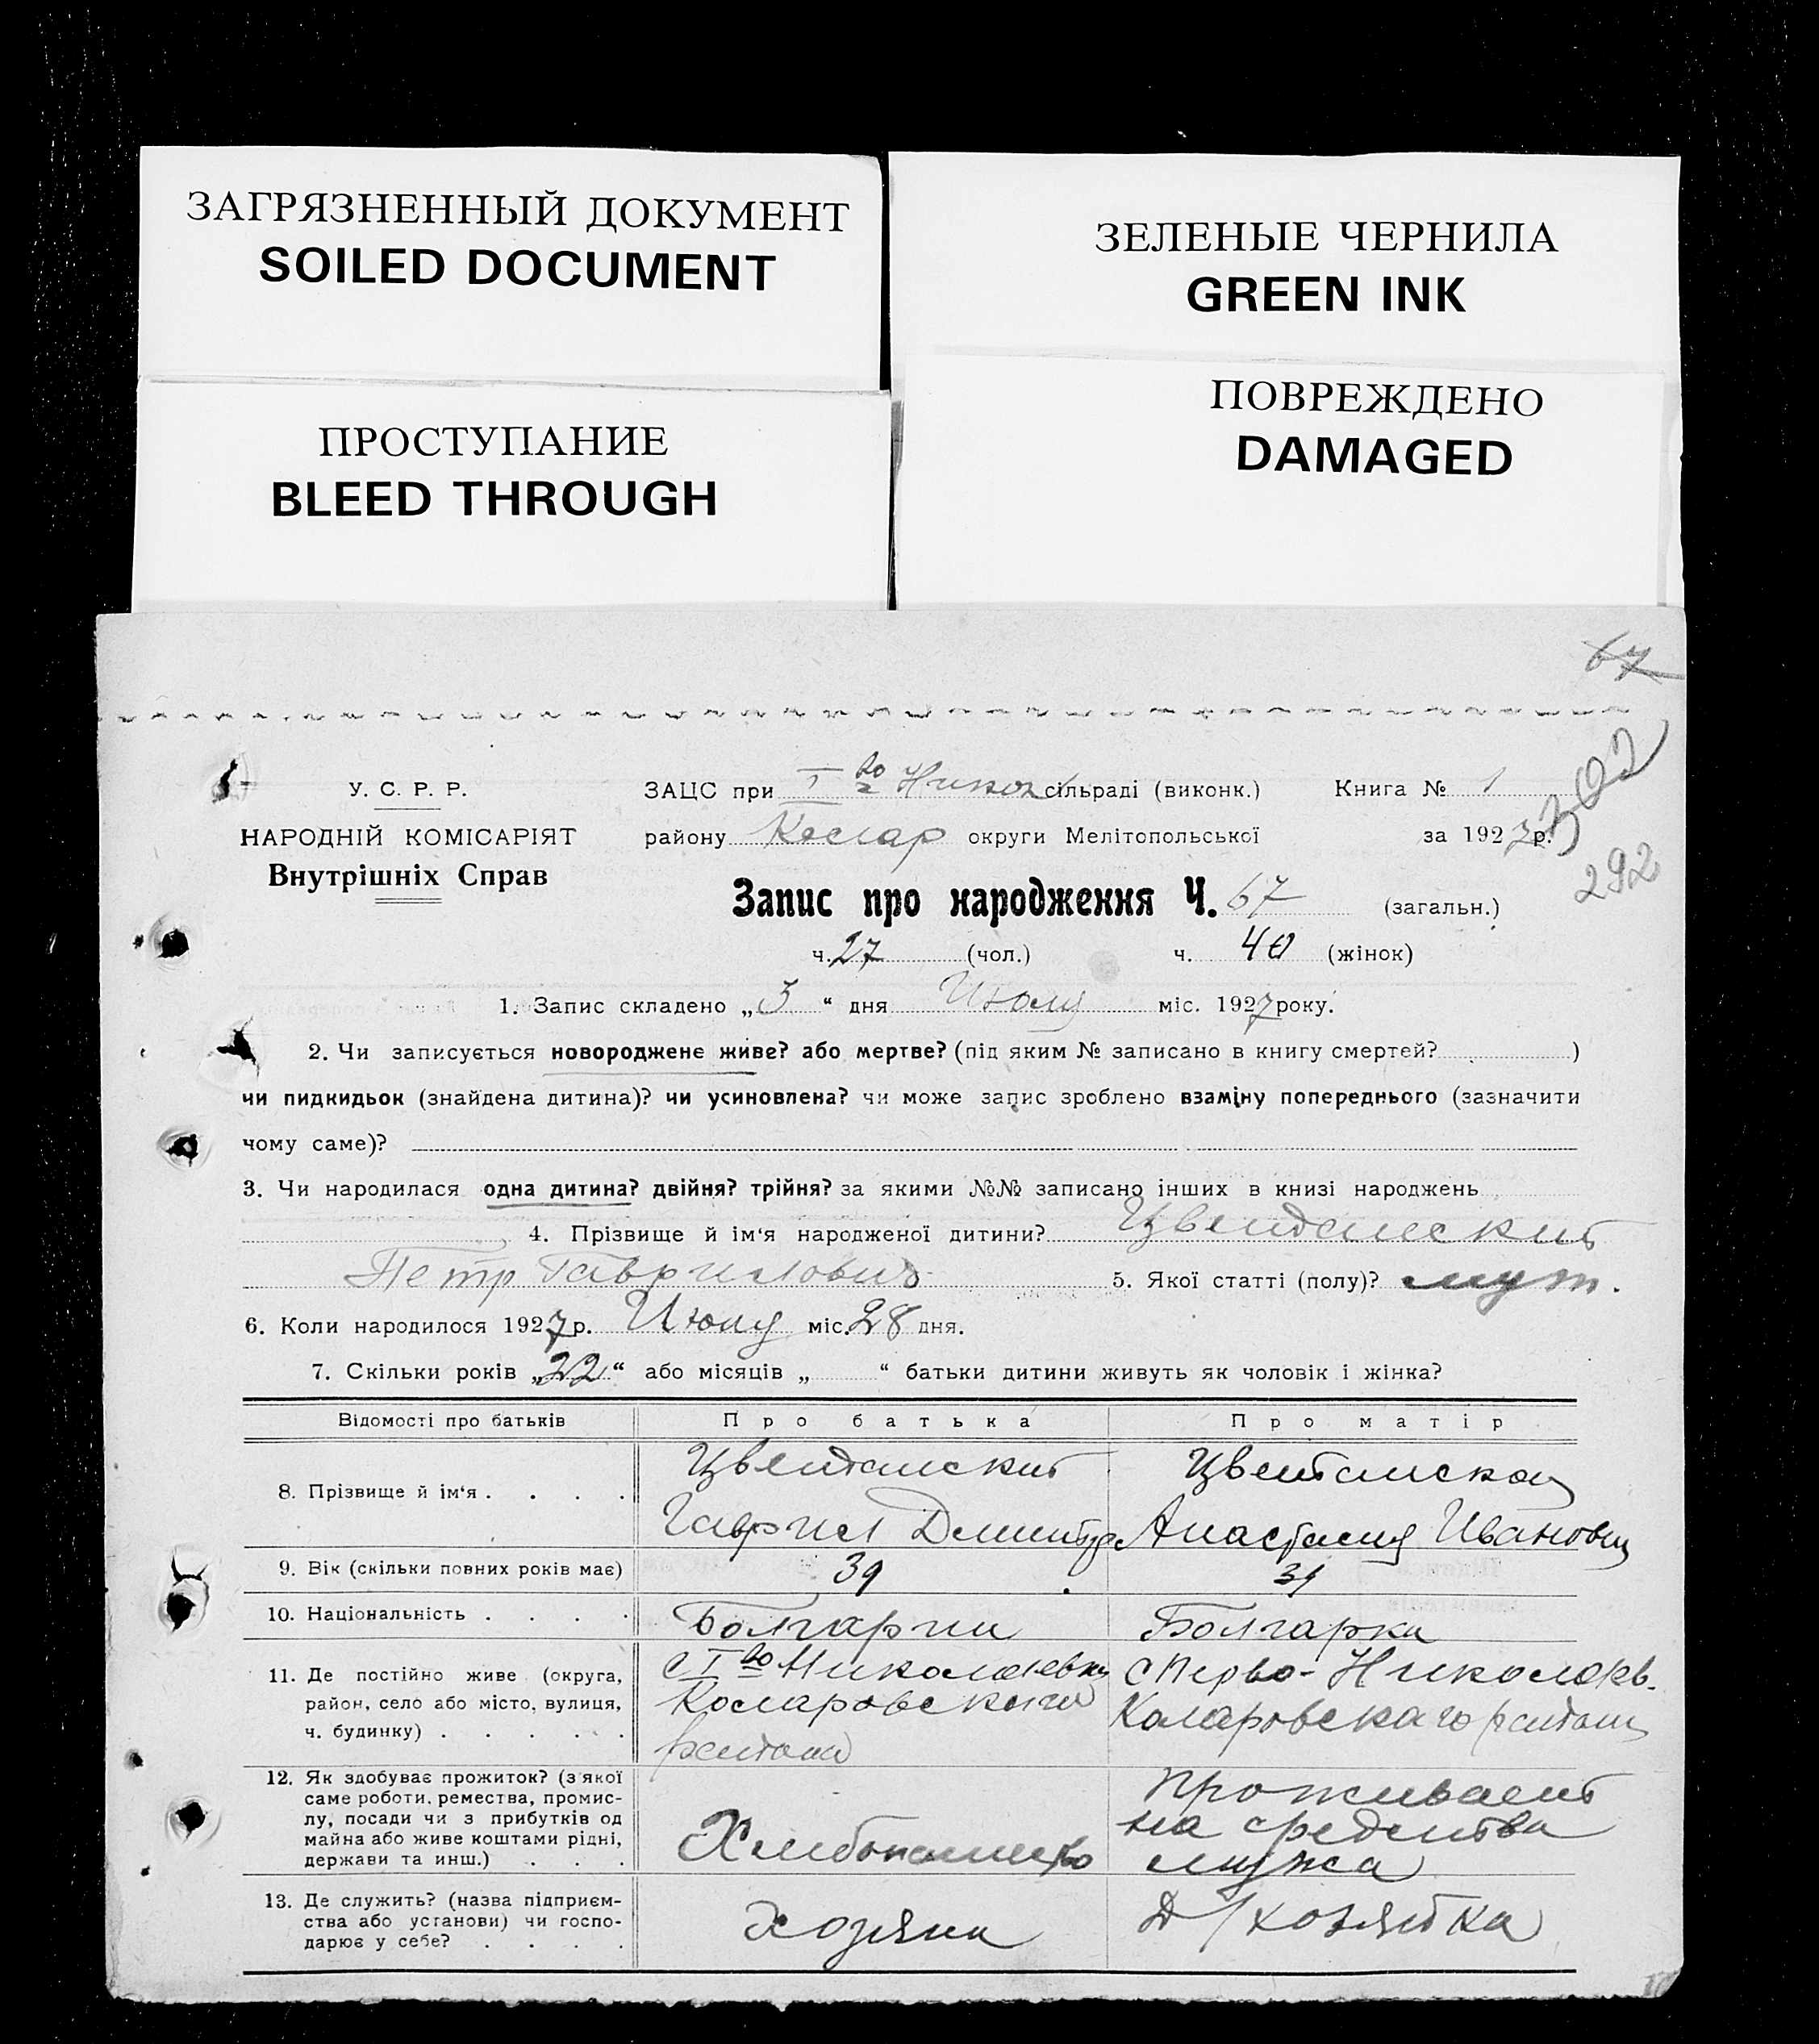 ЗАГРЯЗНЕННЫЙ ДОКУМЕНТ
SOILED DOCUMENT
ЗЕЛЕНЫЕ ЧЕРНИЛА
GREEN INK
ПРОСТУПАНИЕ
BLEED THROUGH
ПОВРЕЖДЕНО
DAMAGED
67
302
292
У. С. Р. Р.
НАРОДНІЙ КОМІСАРІЯТ
Внутрішніх Справ
ЗАЦС при I во Никол сільраді (виконк.) Книга № 1
району Колар округи Мелітопольської за 1927р.
Запис про народження Ч. 67 (загальн.)
ч. 27 (чол.) ч. 40 (жінок)
1. Запис складено „ “ дня міс. 1927 року.
2. Чи записується новороджене живе? або мертве? (під яким № записано в книгу смертей? )
чи пидкидьок (знайдена дитина)? чи усиновлена? чи може запис зроблено взаміну попереднього (зазначити
чому саме)?
3. Чи народилася одна дитина? двійня? трійня? за якими №№ записано інших в книзі народжень
4. Прізвище й ім'я народженої дитини?
Петр Гаврилович 5. Якої статті (полу)? муж.
6. Коли народилося 1927р. міс. 28 дня.
7. Скільки років „22“ або місяців „ “ батьки дитини живуть як чоловік і жінка?
Відомості про батьків
Про батька
Про матір
8. Прізвище й ім'я . . . .
Гаврил
Анастасия Ивановн
9. Вік (скільки повних років має)
39
39
10. Національність . . . .
Болгарин
Болгарка
11. Де постійно живе (округа,
район, село або місто, вулиця,
ч. будинку) . . . . .
с I во Николаевка
Коларовского
района
с Перво-Николаев.
Коларовскаго района
12. Як здобуває прожиток? (з якої
саме роботи, ремества, промис-
лу, посади чи з прибутків од
майна або живе коштами рідні,
держави та инш.) . . .
Хлебопашество
Проживает
на средства
мужа
13. Де служить? (назва підприєм-
ства або установи) чи госпо-
дарює у себе? . . . .
хозяин
Д/хозяйка